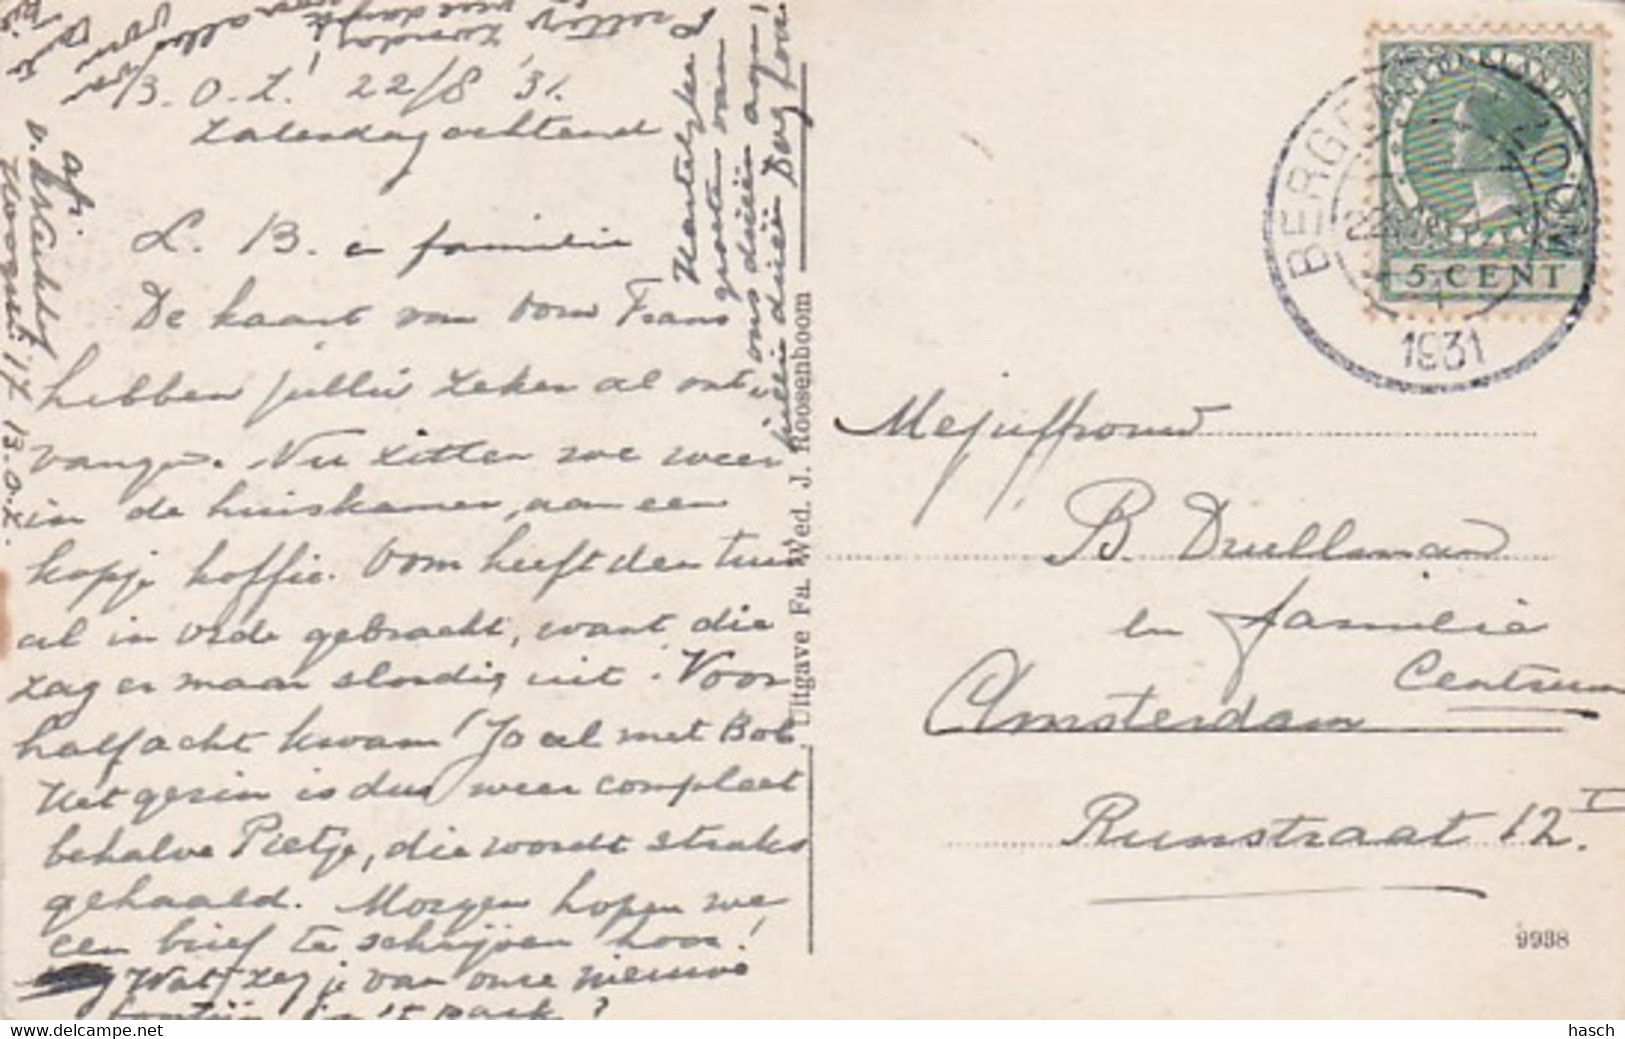 B.O.Z. 22/8 '31.
Zaterdagochtend
L. B. en familie
De kaart van Oom Frans
hebben jullie zeker al ont-
vangen. Nu zitten we weer
in de huiskamer, aan een
kopje koffie. Oom heeft den tuin
al in orde gebracht, want die
zag er maar slordig uit. Voor
half acht kwam Jo al met Bob
Het gezin is dus weer compleet
behalve Pietje, die wordt straks
gehaald. Morgen hopen we
een brief te schrijven hoor!
Wat zeg je van onze nieuwe
fontein in 't park?
Hartelijke
groeten van
ons drieën aan
jullie drieën Dag hoor.
Prettige
Zondag
afz.
13.O.Z.
Uitgave Fa. Wed. J. J. Roosenboom
BERGEN OP ZOOM
22
1931
NEDERLAND
5 CENT
Mejuffrouw
B. Druellman
en familie
Centrum
Amsterdam
Runstraat 12 I.
9938
hasch
www.delcampe.net